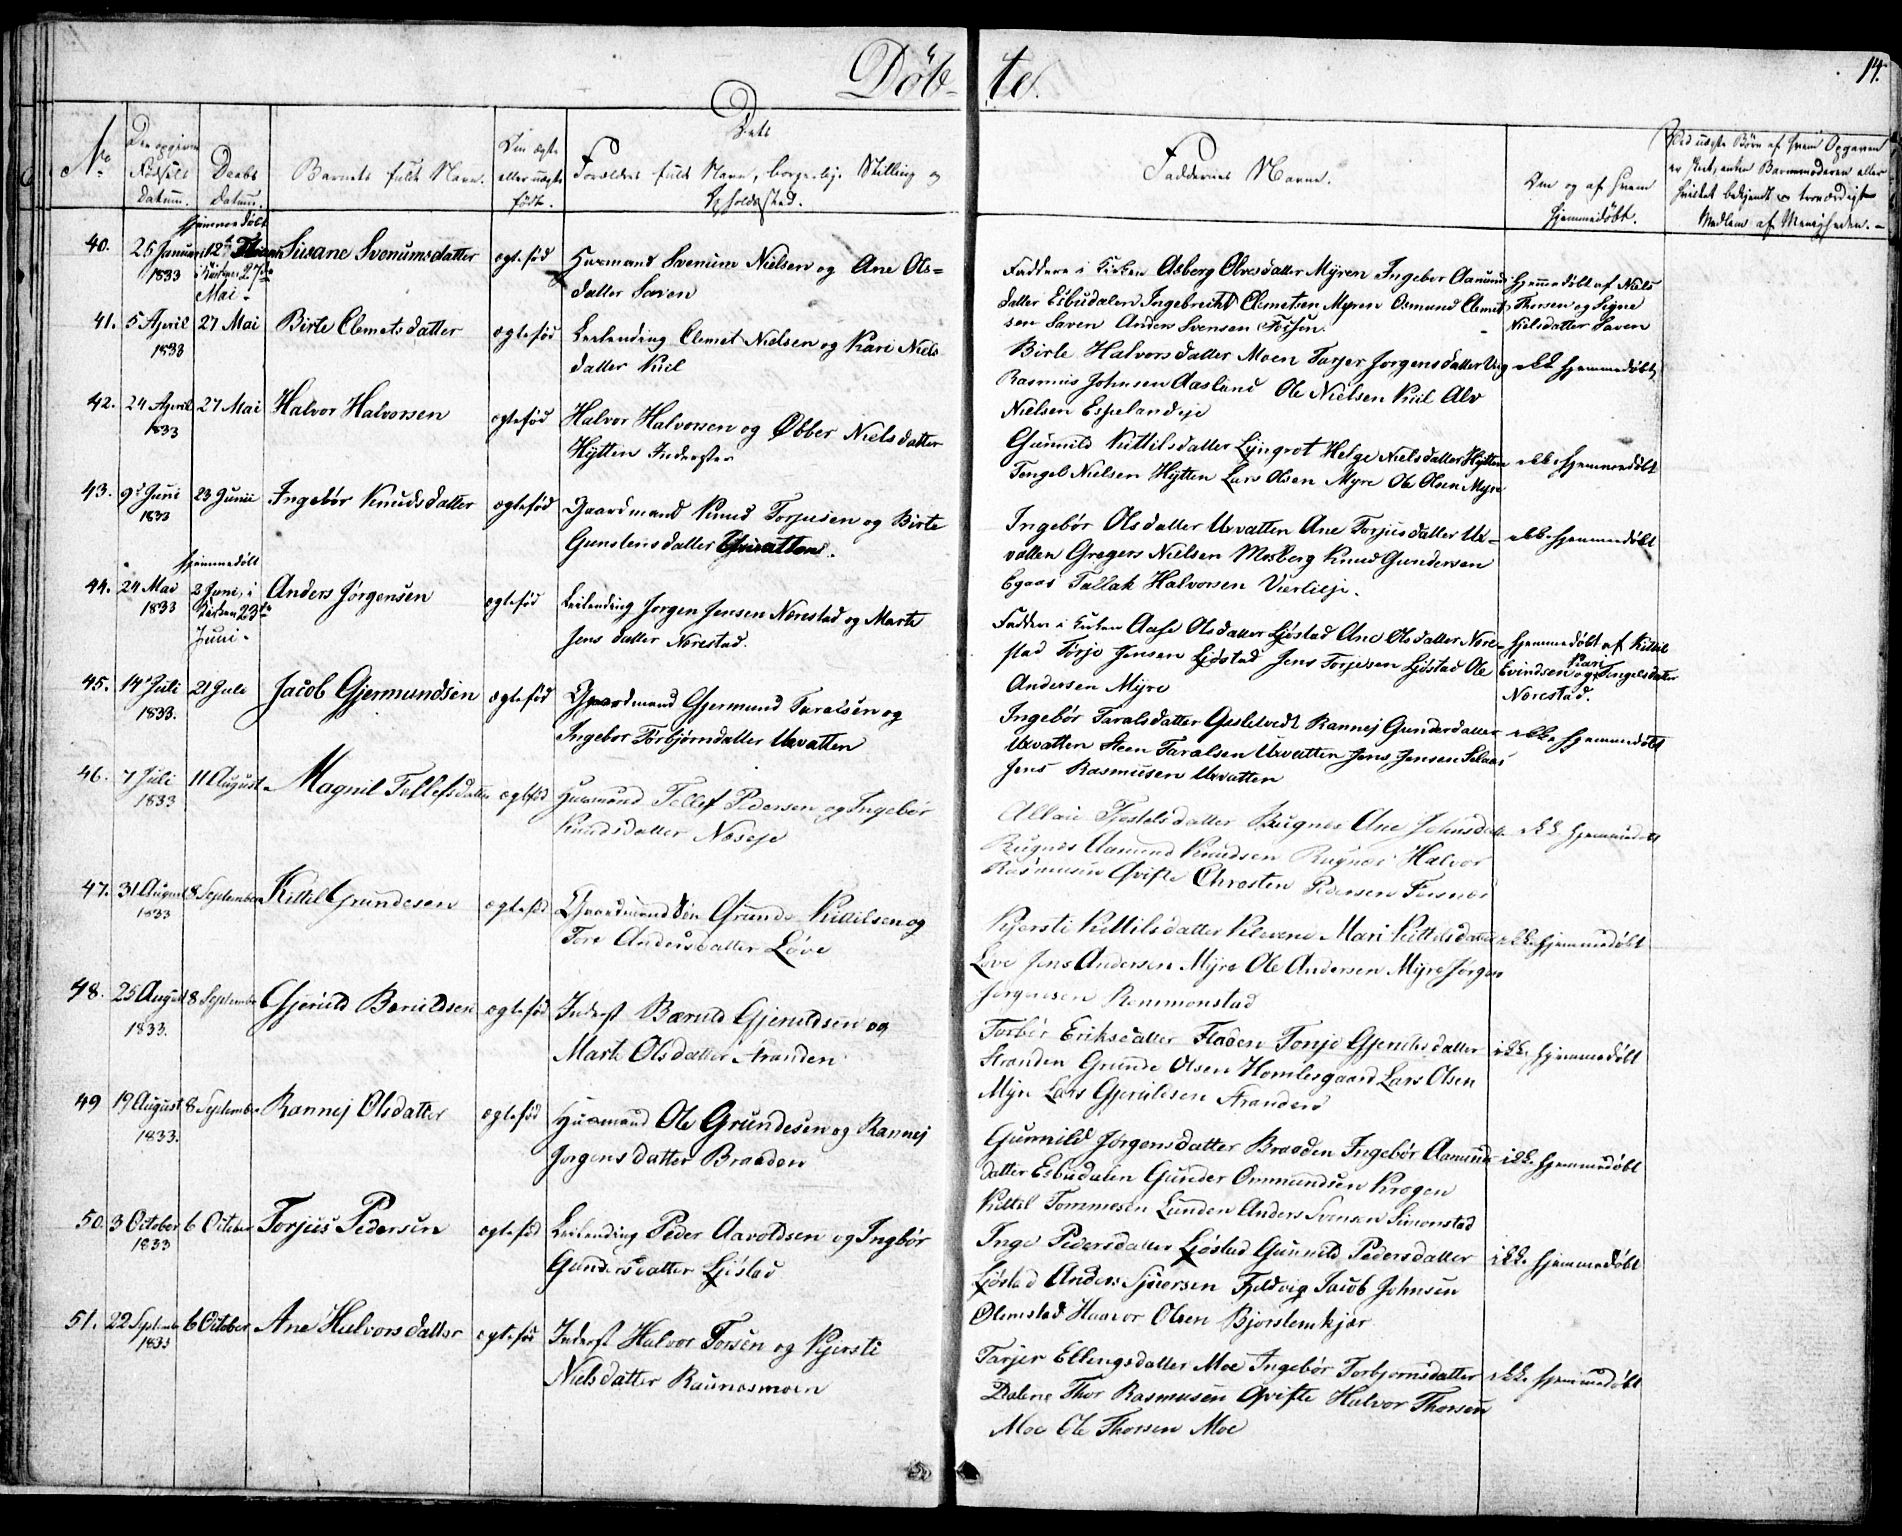 Døb-te.
14.
No
Den opgivne Fødsels datum.
Daabs datum.
Barnets fulde Navn.
Om ægte eller uægte født.
Dets Forældres fulde Navn, borgerlig Stilling og Opholdssted.
Faddernes Navne.
Om og af hvem hjemmedøbt.
Ved uægte Børn af hvem Opgaven er skeet, enten Barnmoderen eller hvilket bekjendt og troværdigt Medlem af Menigheden.-
hjemmedøbt
40. 25 Januar 1833
i Kirken 27de Mai-
Susane Svenumsdatter
ægtefød
Huusmand Svenum Nielsen og Ane Ols=
datter Saven
Faddere i Kirken Asberg Olvesdatter Myren Ingebor Aamunds
datter Esbudalen Ingebreckt Clemetsen Myren Osmund Clemet
sen Saven Anders Svensen Fossen.
Hjemmedøbt af Niels
Thorsen og Signe
Nielsdatter Saven
41. 5 April 1833
27 Mai
Birte Clemetsdatter
ægtefød
Leilending Clemet Nielsen og Kari Niels
datter Kiil
Birte Halvorsdatter Moen Tarjer Jorgensdatter
Rasmus Johnsen Aasland Ole Nielsen Kiil Alv
Nielsen Espelandeje
ikke hjemmedøbt
42. 24 April 1833
27 Mai
Halvor Halvorsen
ægtefød
Halvor Halvorsen og Øbber Nielsdatter
Hytten Inderster
Gunnild Kittilsdatter Lyngrot Helge Nielsdatter Hytten
Tengel Nielsen Hytten Lars Olsen Myre Ole Olsen Myre
ikke hjemmedøbt
43. 9d Juni 1833
23 Junii
Ingebør Knudsdatter
ægtefød
Gaardmand Knud Torjusen og Birte
Gunstensdatter Uvatten.
Ingebør Olsdatter Uvatten Ane Torjusdatter U=
vatten Gregers Nielsen Mosberg Knud Gundersen
Egaas Tallak Halvorsen Vierlieje.
ikke hjemmedøbt
hjemmedøbt
44. 24 Mai 1833
2 Juni, i
Kirken 23de
Juni-
Anders Jörgensen
ægtefød
Leilending Jorgen Jensen Norestad og Marte
Jens datter Norestad.
Faddere i Kirken Aase Olsdatter Ljøstad Ane Olsdatter Nore-
stad Torje Jensen Ljöstad Jens Torjesen Ljöstad Ole
Andersen Myre
hjemmedøbt af Kittil
Evindsen og Kari Tengelsdatter
Norestad.
45. 14 Juli 1833.
21 Jule
Jacob Gjermundsen
ægtefød
Gaardmand Gjermund Taralsen og
Ingebor Torbjørndatter Uvatten
Ingebör Taralsdatter Geslelvedt Rannej Gunderdatter
Uvatten Steen Taralsen Uvatten Jens Jensen Selaas
Jens Rasmusen Uvatten
ikke hjemmedøbt
46. 7 Juli 1833
11 August
Magnil Tellefsdatter
ægtefød
Huusmand Tellef Pedersen og Ingebør
Knudsdatter Neseje
Tjostelsdatter Rugnes Ane Johnsdatter
Rugnes Aamund Knudsen Rugnes Halvor
Rasmusen Qvifte Chresten Pedersen
ikke hjemmedøbt
47. 31 August 1833
8 September
Kittel Grundesen
ægtefød
Gaardmand Grunde Kittilsen og
Tore Andersdatter Løve
Kjersti Kittilsdatter Klevene Mari Kittelsdatter
Løve Jens Andersen Myre Ole Andersen Myre Jorgen
Jorgnesen Rommonstad
ikke hjemmedøbt
48. 25 August 1833.
8 September
Gjeruld Beruldsen
ægtefød
Inderst Bæruld Gjeruldsen og
Marte Olsdatter Stranden
Torbör Eriksdatter Floden Tonje Gjeruldsdatter
Stranden Grunde Olsen Homlesgaard Lars Olsen
Myre Lars Gjeruldsen Stranden
ikke hjemmedøbt
49 19 August 1833.
8 September
Rannej Olsdatter
ægtefød
Huusmand Ole Grundesen og Rannej
Jorgensdatter Braaden
Gunnild Jørgensdatter Braaden Ingebör Aamunds
datter Esbudalen Gunder Ommundsen Krogen
Kittil Tommesen Lunden Anders Svensen Simonstad
ikke hjemmedøbt
50. 3 October 1833
6 October
Torjus Pedersen
ægtefød
Leilending Peder Aavoldsen og Ingbør
Gundersdatter Ljöstad
Inge Pedersdatter Ljöstad Gunnild Pedersdatter
Ljöstad Anders Syversen Fjeldvig Jacob Johnsen
Ølmestad Haavor Olsen Bjorstemkjær
ikke hjemmedøbt
51. 22 Septembr 1833
6 October
Ane Halvorsdatter
ægtefød
Inderst Halvor Torsen og Kjersti
Nielsdatter Raunesmoen
Tarjer Ellengsdatter Moe Ingebör Torbjornsdatter
Dalene Thor Rasmusen Qvifte Halvor Thorsen
Moe Ole Thorsen Moe
ikke hjemmedøbt